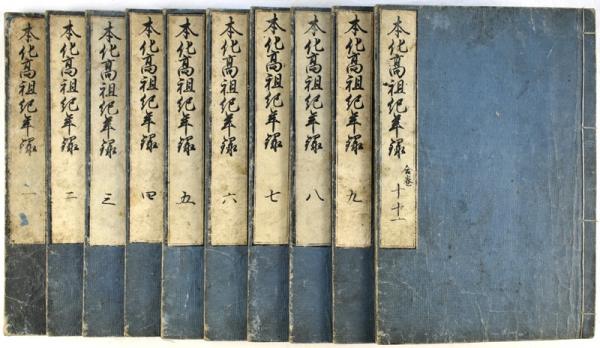 本化高祖紀年録 一
本化高祖紀年録 二
本化高祖紀年録 三
本化高祖紀年録 四
本化高祖紀年録 五
本化高祖紀年録 六
本化高祖紀年録 七
本化高祖紀年録 八
本化高祖紀年録 九
本化高祖紀年録 合巻 十十一